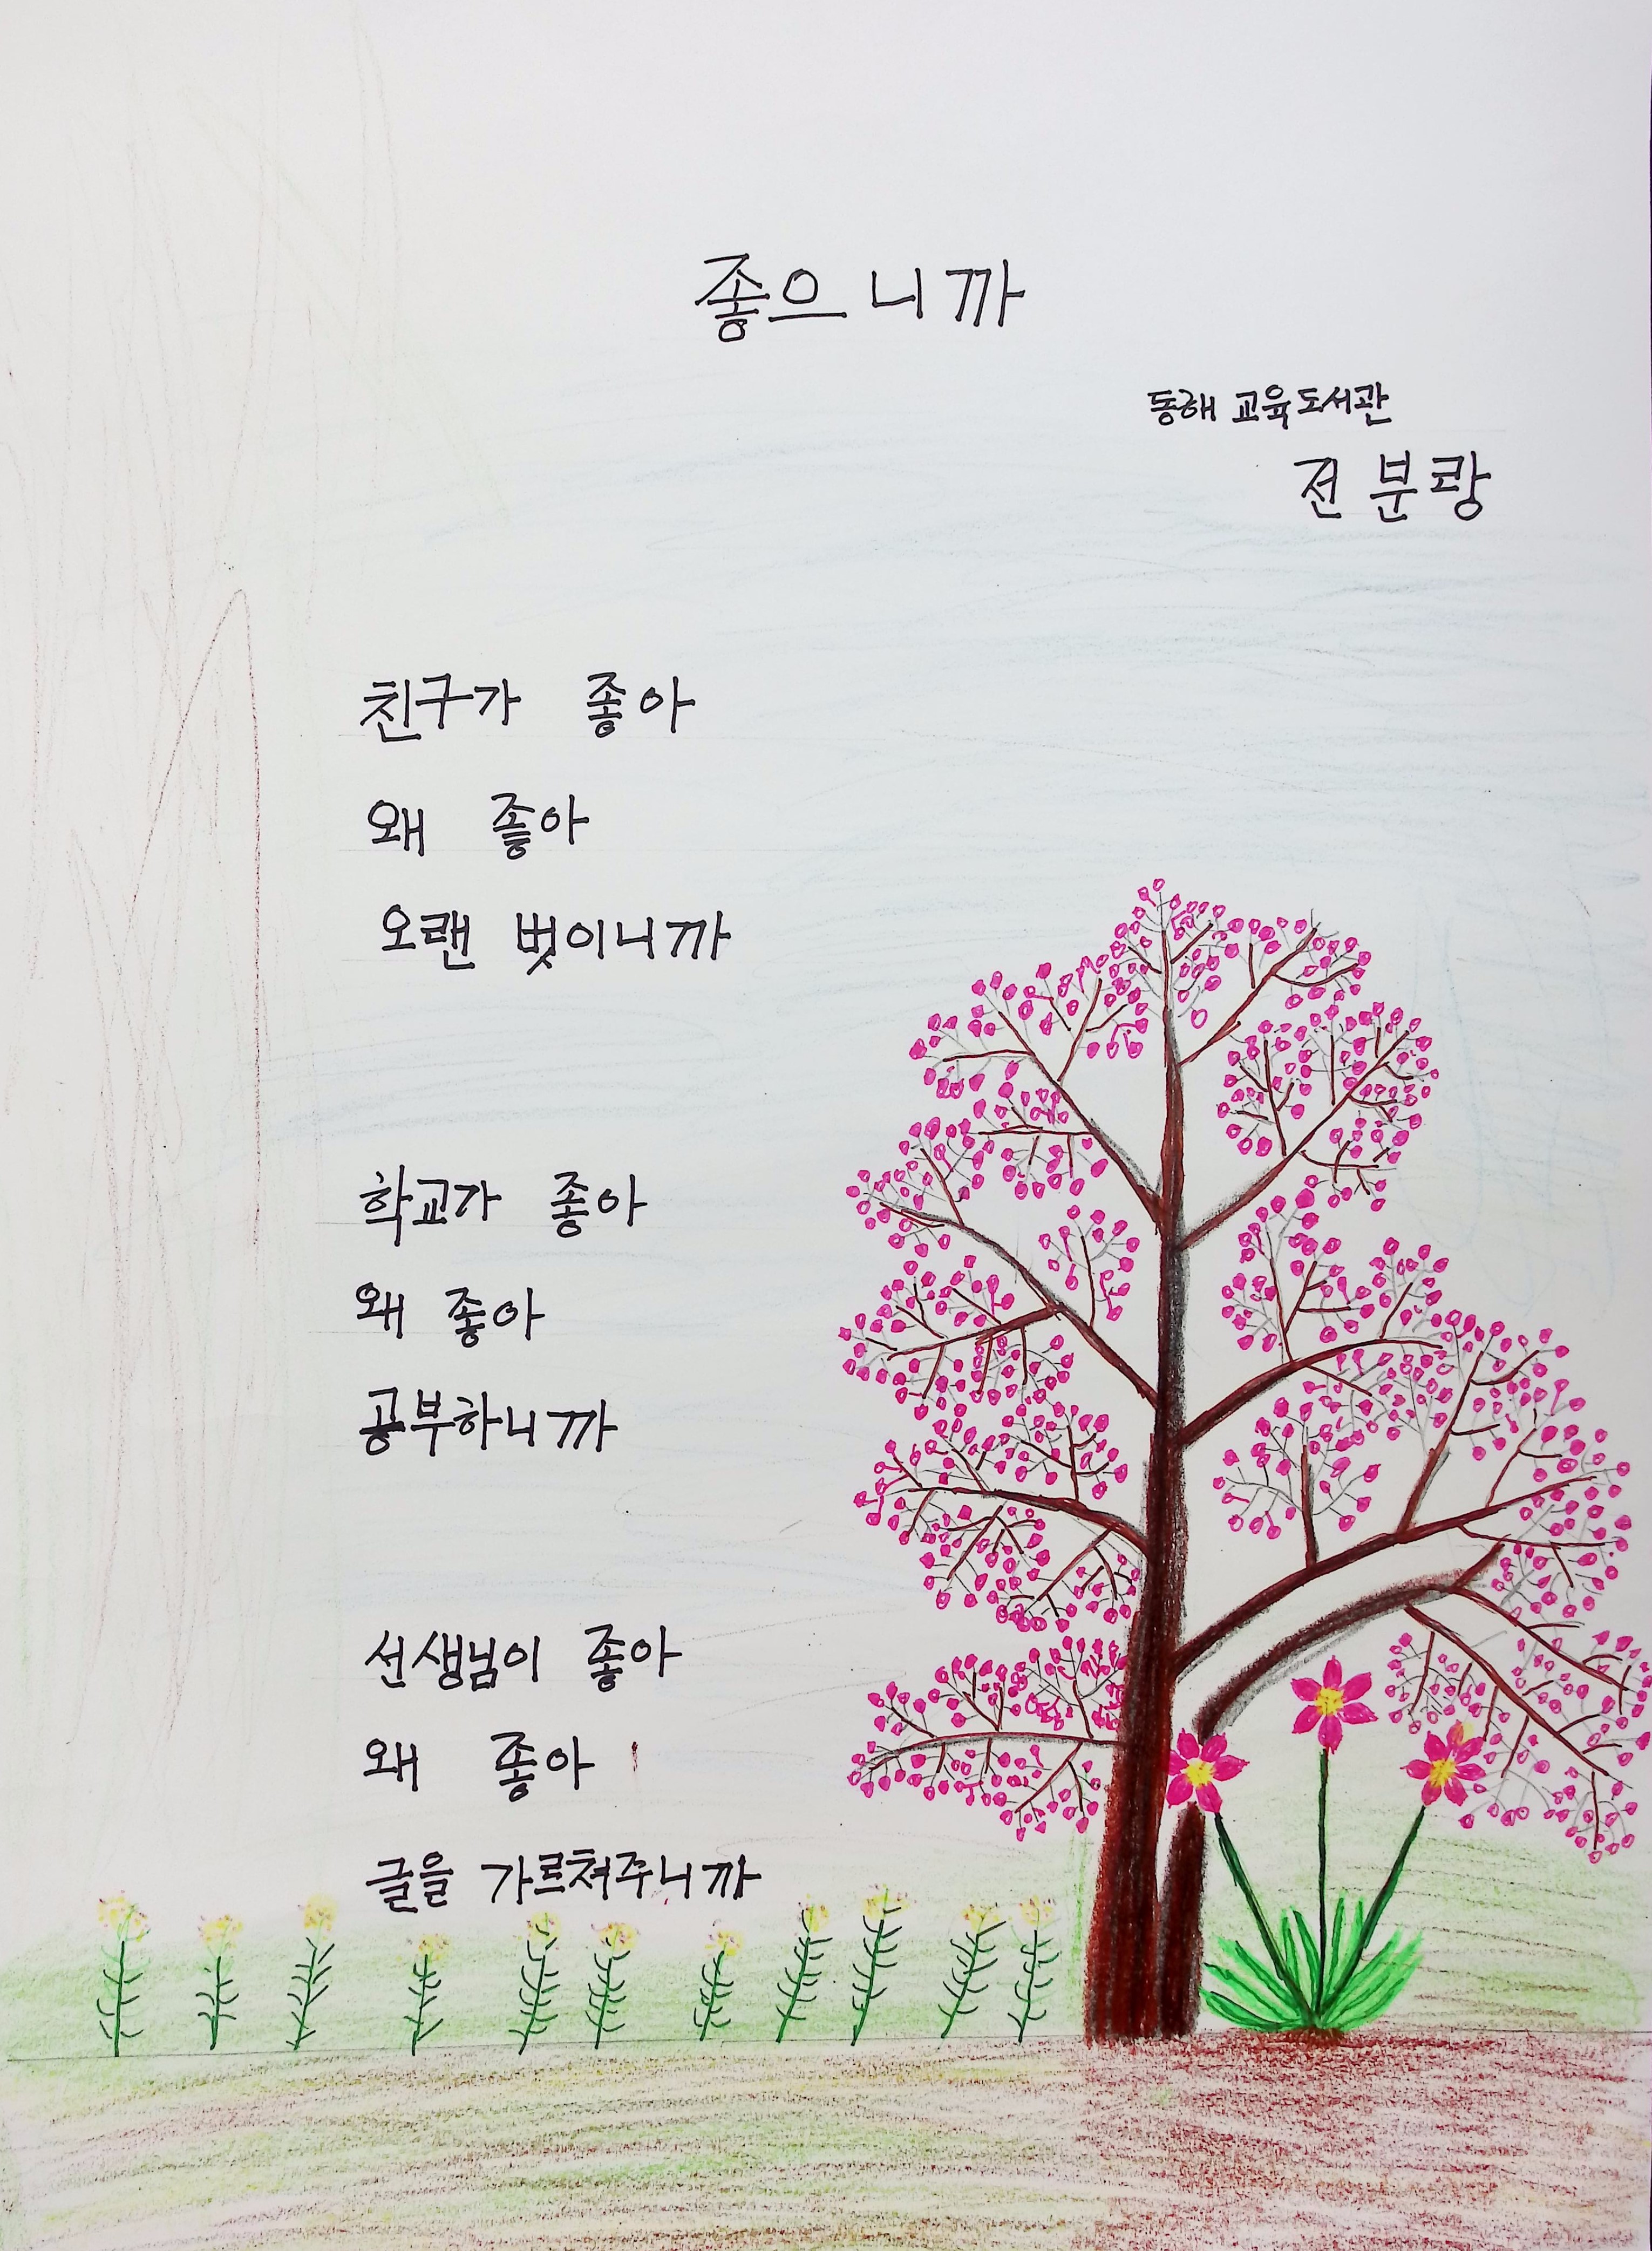 좋으니까
동해 교육도서관
전분랑
친구가 좋아
왜 좋아
오랜 벗이니까
학교가 좋아
왜 좋아
공부하니까
선생님이 좋아
왜 좋아
글을 가르쳐주니까